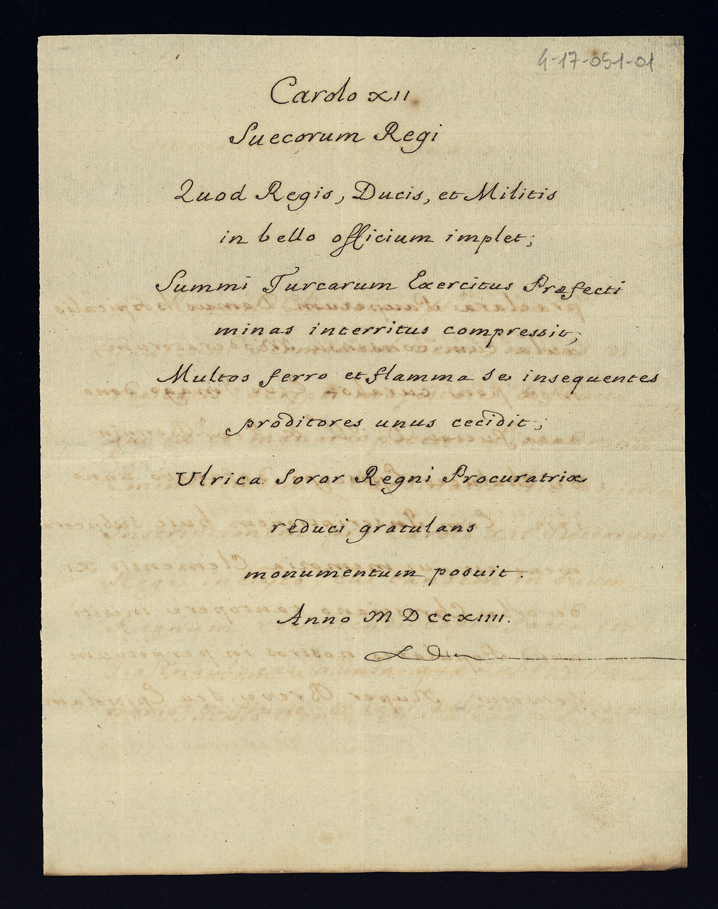 4-17-051-01
Carolo XII
Suecorum Regi
Quod Regis, Ducis, et Militis
in bello officium implet;
Summi Turcarum Exercitus Præfecti
minas interritus compressit;
Multos ferro et flamma se insequentes
proditores unus cecidit;
Ulrica Soror Regni Procuratrix
reduci gratulans
monumentum posuit.
Anno MDCCXIIII.